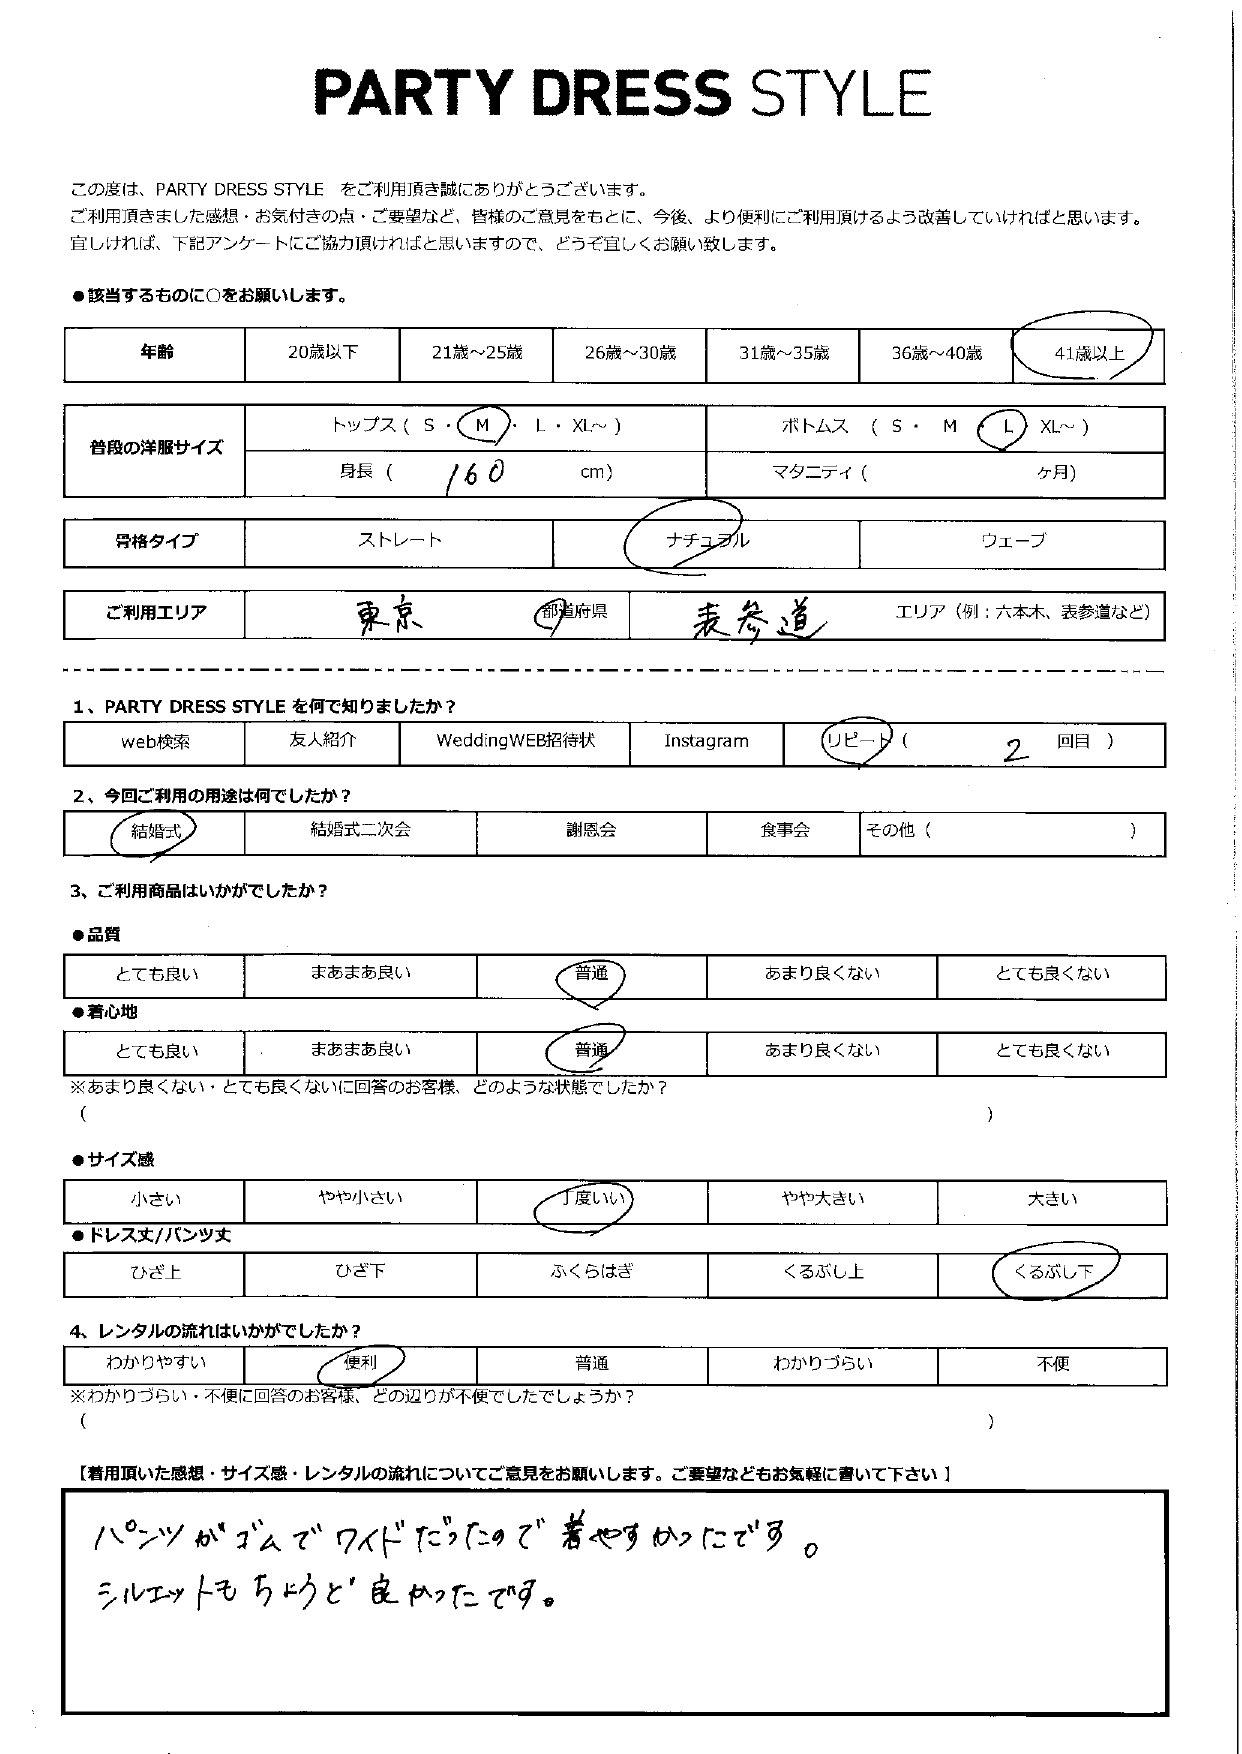 PARTY DRESS STYLE
この度は、PARTY DRESS STYLE をご利用頂き誠にありがとうございます。
ご利用頂きました感想・お気付きの点・ご要望など、皆様のご意見をもとに、今後、より便利にご利用頂けるよう改善していければと思います。
宜しければ、下記アンケートにご協力頂ければと思いますので、どうぞ宜しくお願い致します。
●該当するものに○をお願いします。
年齢 20歳以下 21歳～25歳 26歳～30歳 31歳～35歳 36歳～40歳 41歳以上
普段の洋服サイズ トップス ( S ・ M ・ L ・ XL～ ) ボトムス ( S ・ M ・ L XL～ )
身長 ( 160 cm) マタニティ ( ヶ月)
骨格タイプ ストレート ナチュラル ウェーブ
ご利用エリア 東京 都道府県 表参道 エリア（例：六本木、表参道など）
1、PARTY DRESS STYLE を何で知りましたか？
web検索 友人紹介 WeddingWEB招待状 Instagram リピート ( 2 回目 )
2、今回ご利用の用途は何でしたか？
結婚式 結婚式二次会 謝恩会 食事会 その他 ( )
3、ご利用商品はいかがでしたか？
●品質
とても良い まあまあ良い 普通 あまり良くない とても良くない
●着心地
とても良い まあまあ良い 普通 あまり良くない とても良くない
※あまり良くない・とても良くないに回答のお客様、どのような状態でしたか？
( )
●サイズ感
小さい やや小さい 丁度いい やや大きい 大きい
●ドレス丈/パンツ丈
ひざ上 ひざ下 ふくらはぎ くるぶし上 くるぶし下
4、レンタルの流れはいかがでしたか？
わかりやすい 便利 普通 わかりづらい 不便
※わかりづらい・不便に回答のお客様、どの辺りが不便でしたでしょうか？
( )
【着用頂いた感想・サイズ感・レンタルの流れについてご意見をお願いします。ご要望などもお気軽に書いて下さい】
パンツがゴムでワイドだったので着やすかったです。
シルエットもちょうど良かったです。